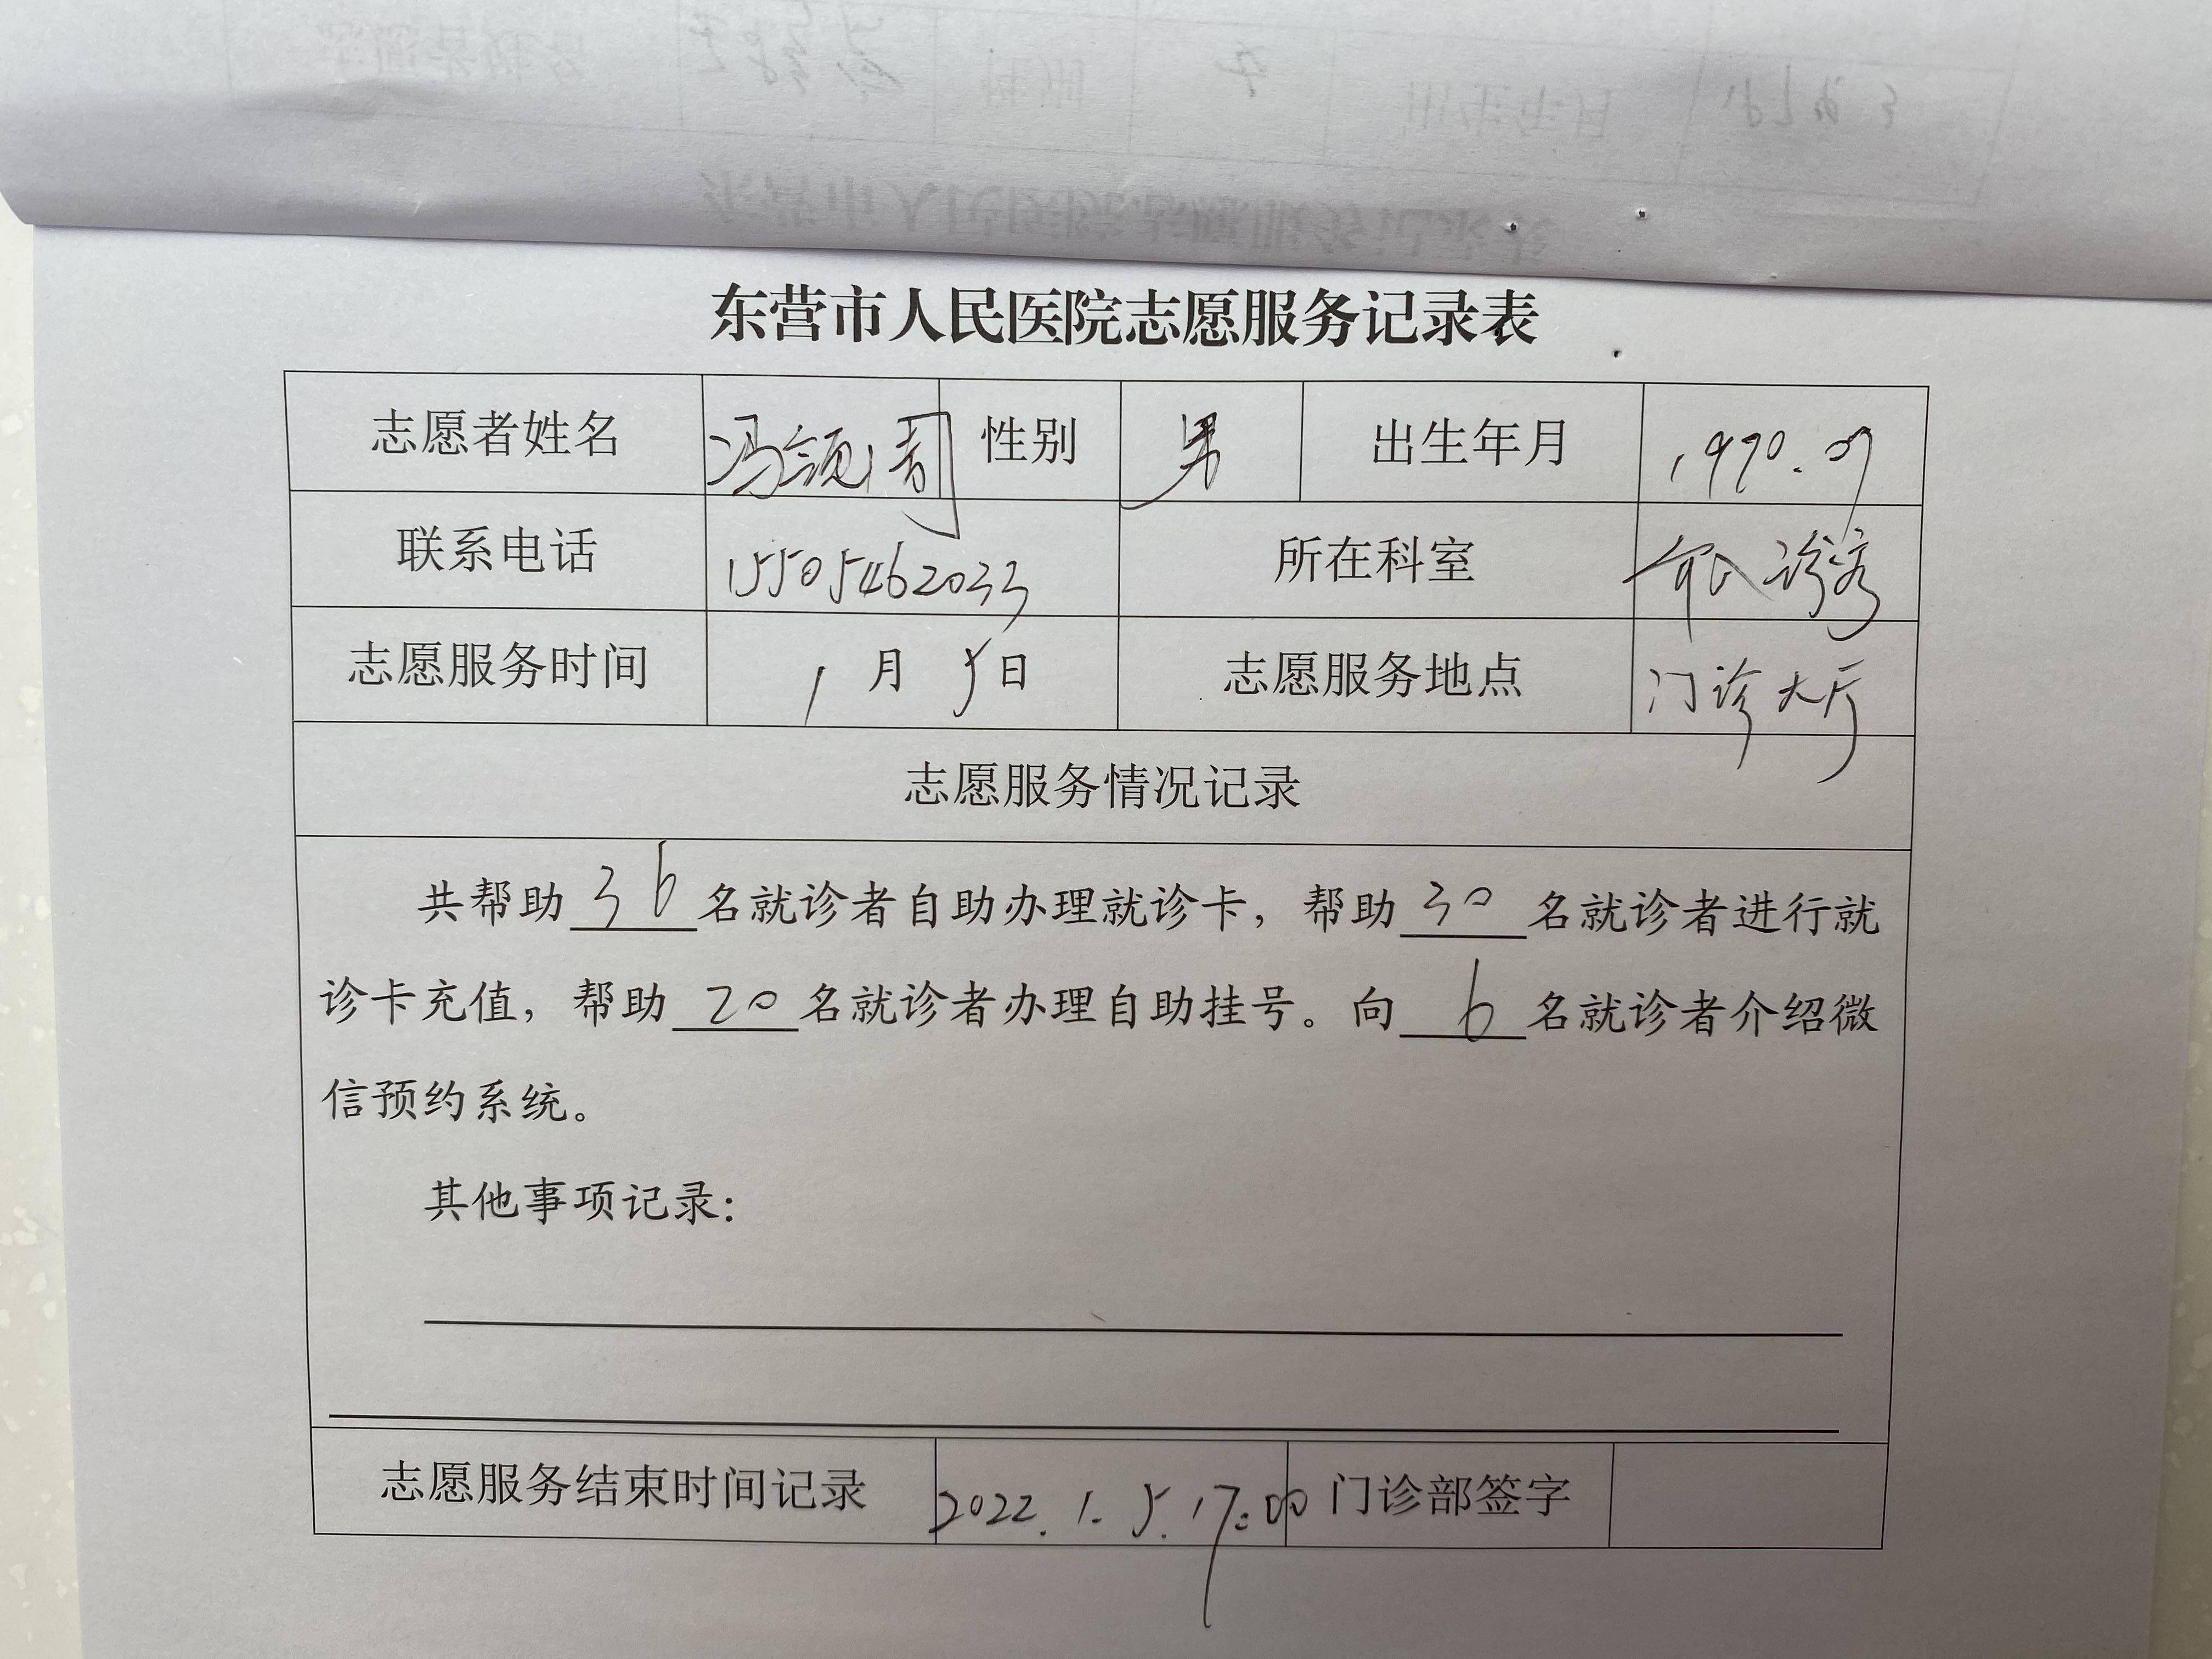 东营市人民医院志愿服务记录表
志愿者姓名 性别 男 出生年月 1990.09
联系电话 15505462033 所在科室
志愿服务时间 1月5日 志愿服务地点 门诊大厅
志愿服务情况记录
共帮助36名就诊者自助办理就诊卡，帮助30名就诊者进行就
诊卡充值，帮助20名就诊者办理自助挂号。向6名就诊者介绍微
信预约系统。
其他事项记录：
志愿服务结束时间记录 2022.1.5.17:00 门诊部签字